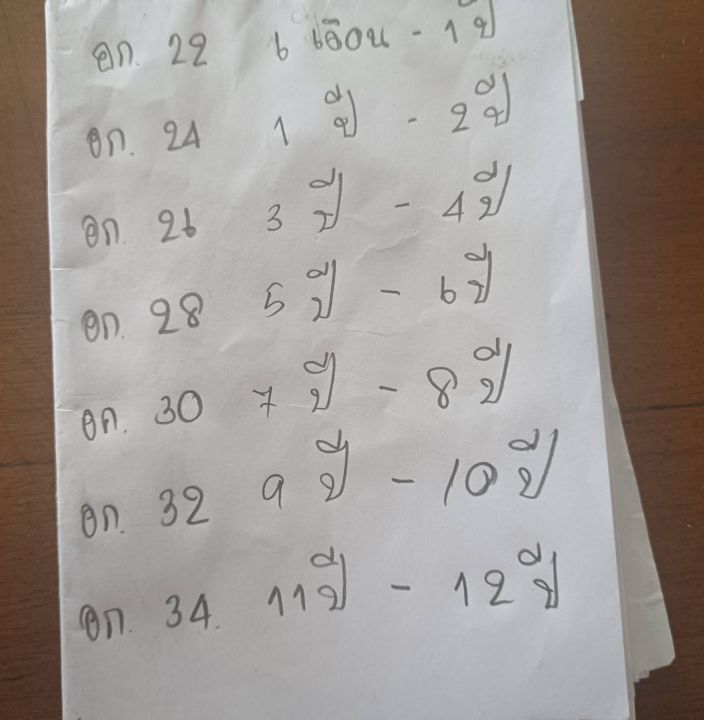 อก. 22 6 เดือน - 1 ปี
อก. 24 1 ปี - 2 ปี
อก. 26 3 ปี - 4 ปี
อก. 28 5 ปี - 6 ปี
อก. 30 7 ปี - 8 ปี
อก. 32 9 ปี - 10 ปี
อก. 34. 11 ปี - 12 ปี